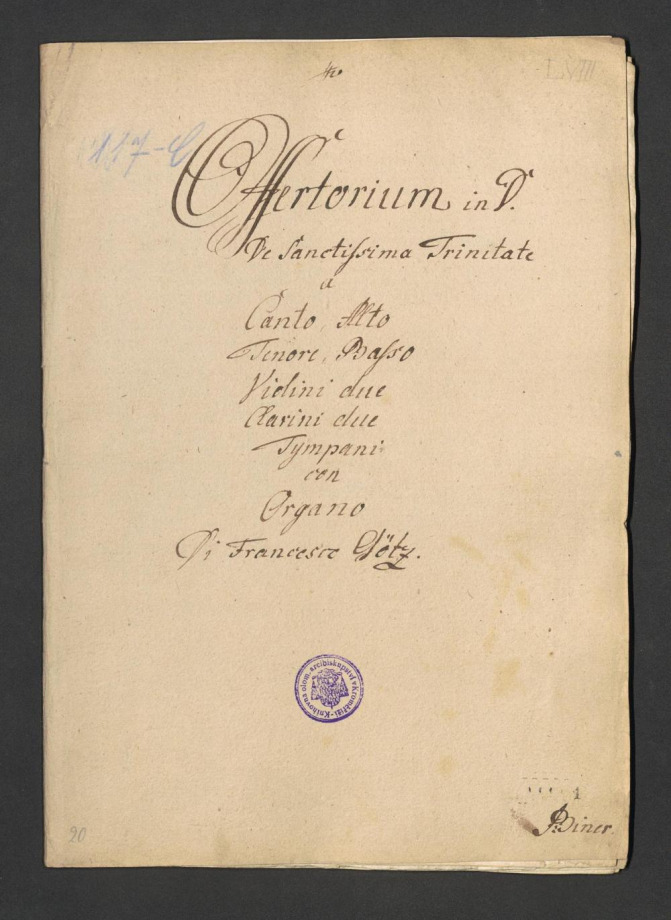 LVIII
117-C
Offertorium in D.
De Sanctissima Trinitate
a
Canto, Alto
Tenore, Basso
Violini due
Clarini due
Tympani
con
Organo
Di Francesco Götz.
Knihovna olom. arcibiskupství v Kroměříži
1
Biner.
20